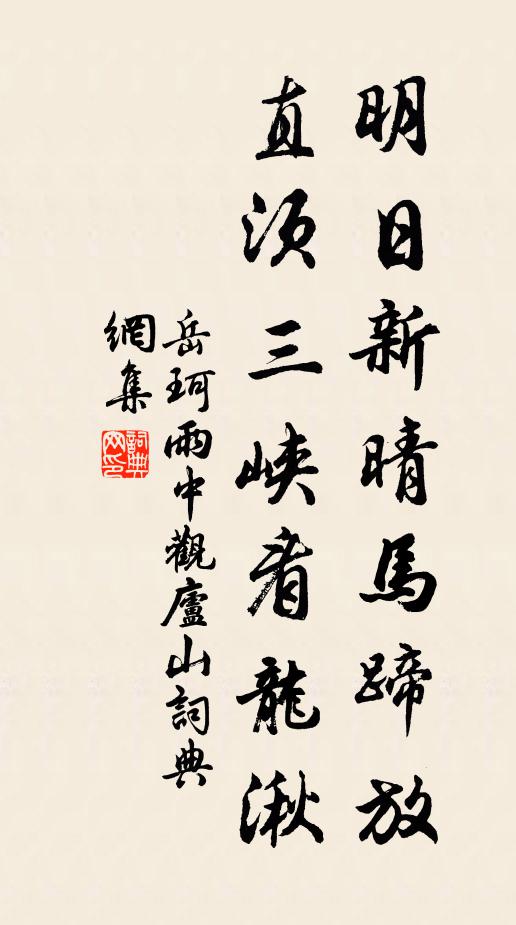 明日新晴馬蹄放
直須三峽看龍湫
岳珂雨中觀廬山詞典
網集
詞典網印